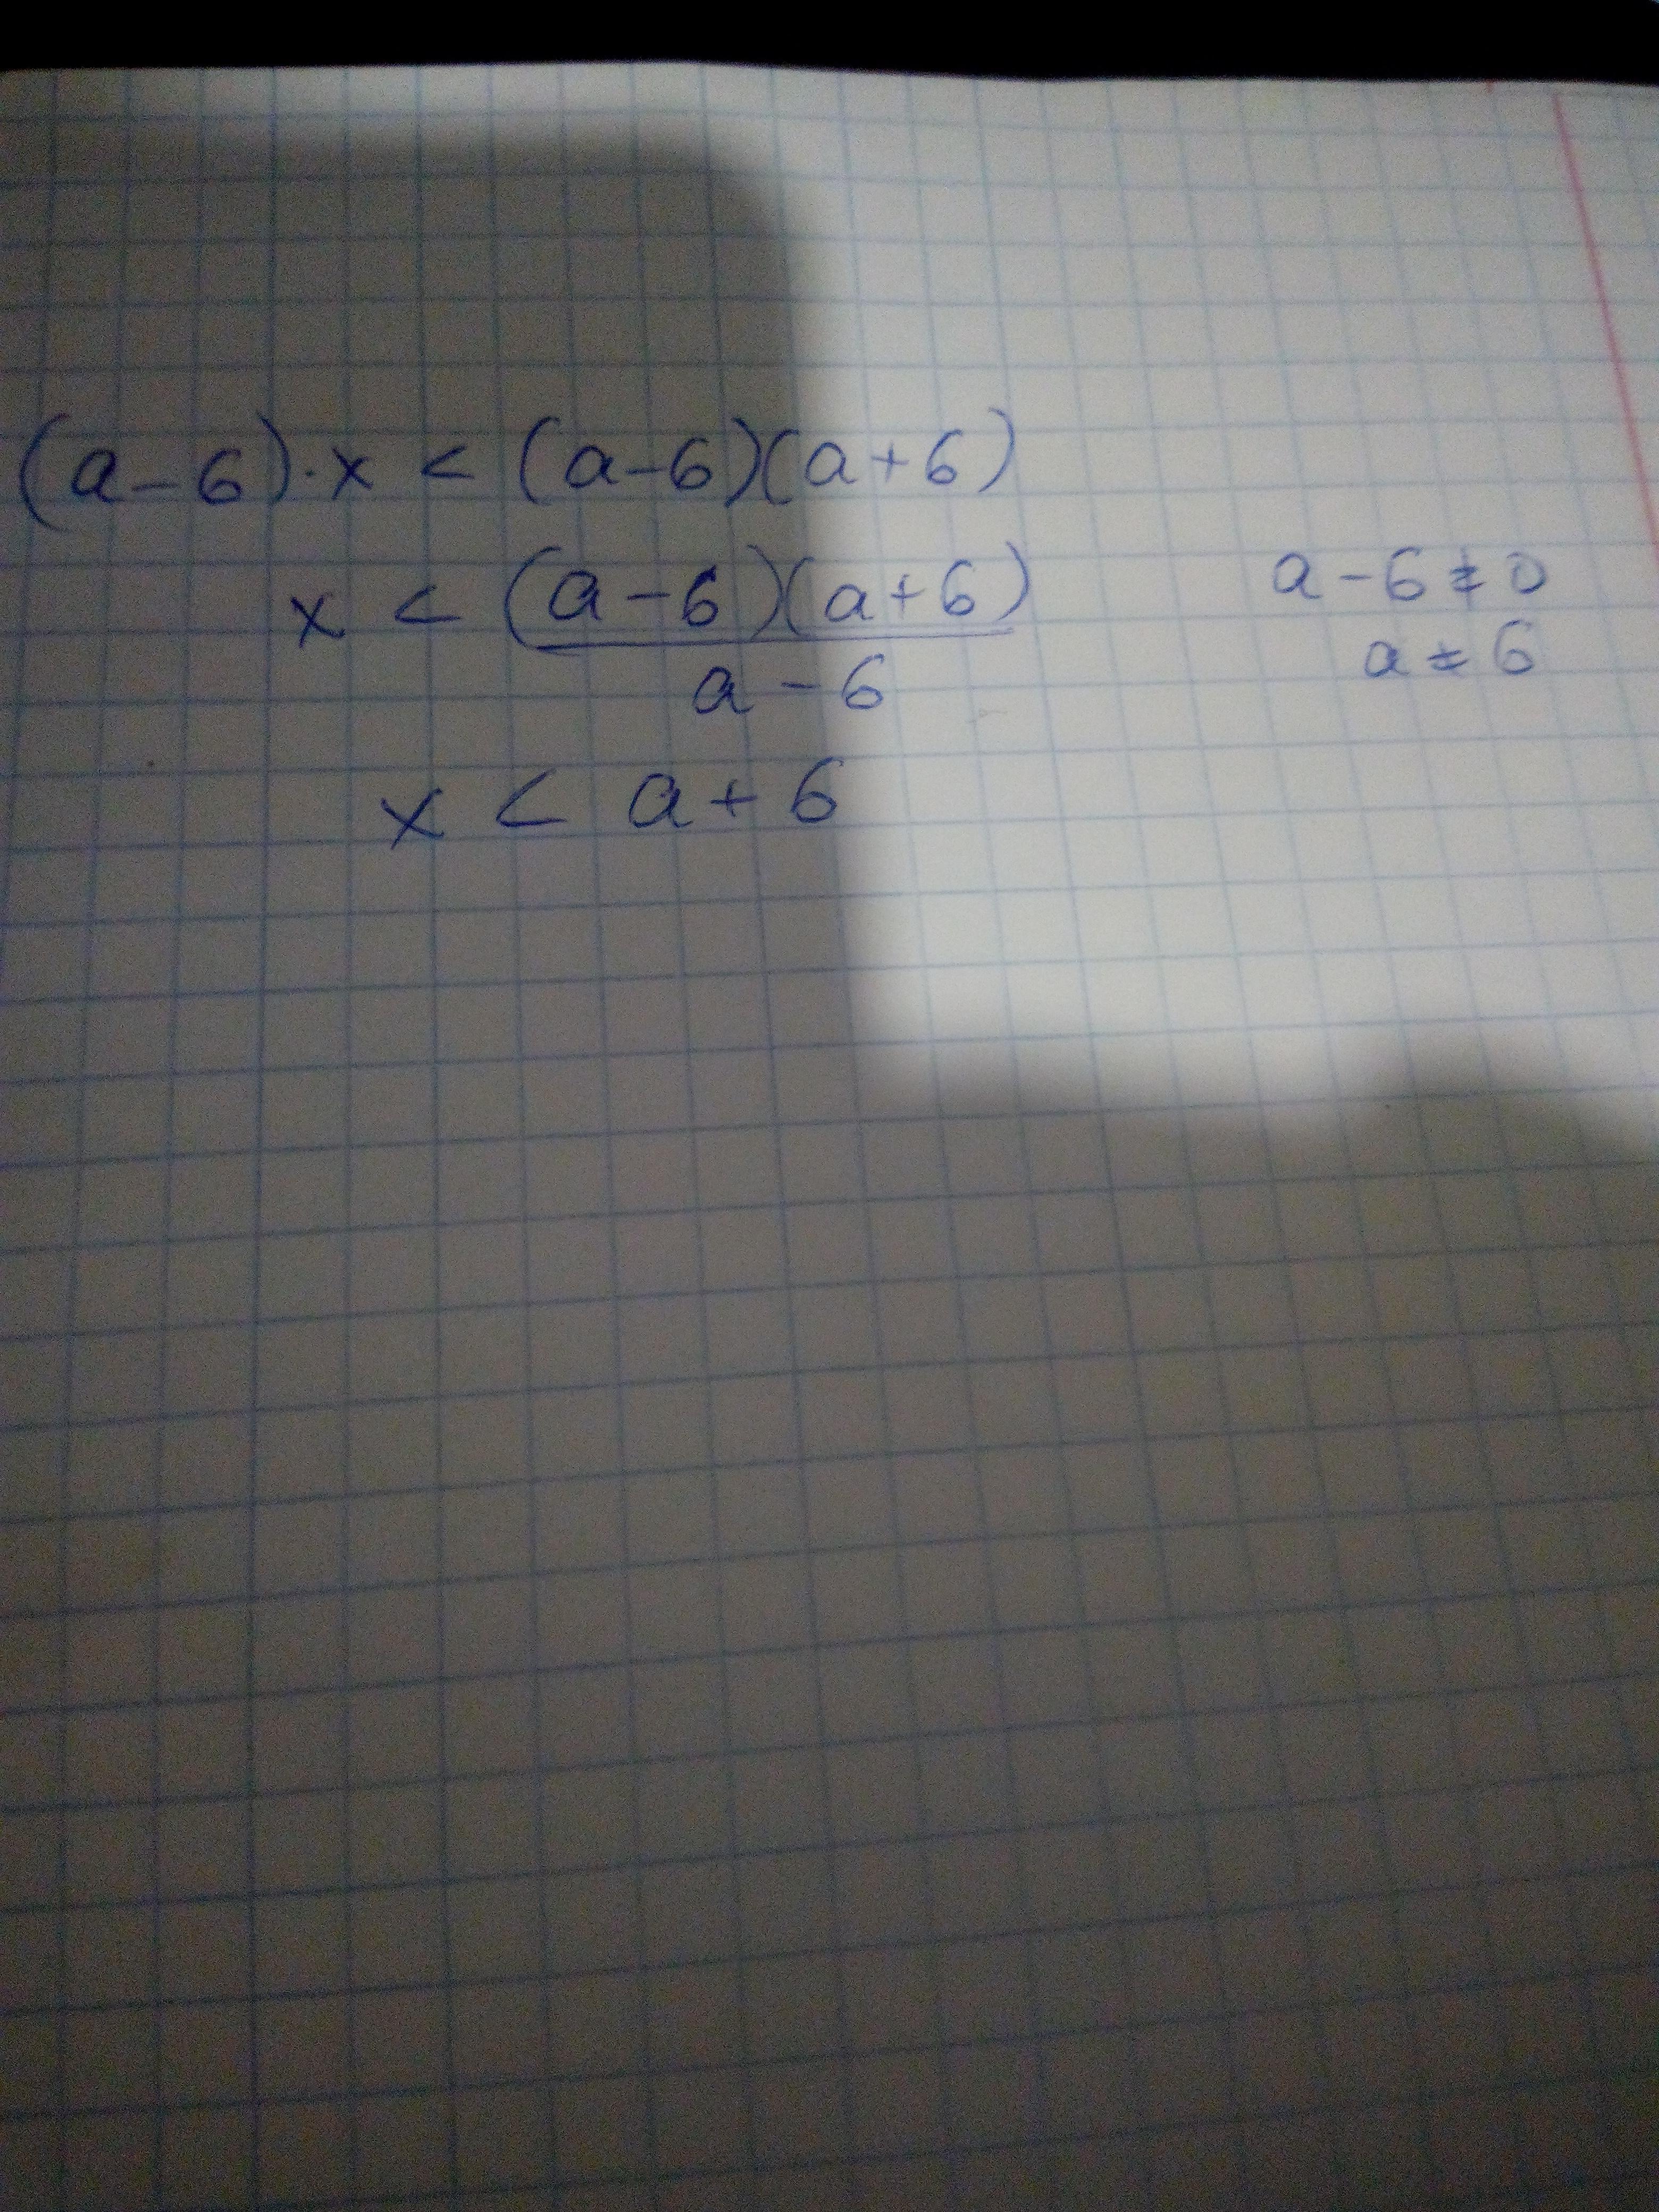 (a-6)·x < (a-6)(a+6)
x < (a-6)(a+6)
a-6
a-6≠0
a≠6
x < a+6